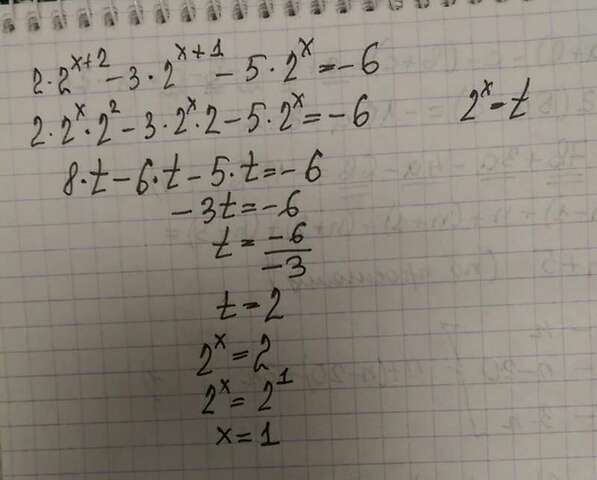 2·2^{x+2} − 3·2^{x+1} − 5·2^x = −6
2·2^x·2^2 − 3·2^x·2 − 5·2^x = −6
2^x = t
8·t − 6·t − 5·t = −6
−3t = −6
t = \frac{−6}{−3}
t = 2
2^x = 2
2^x = 2^1
x = 1